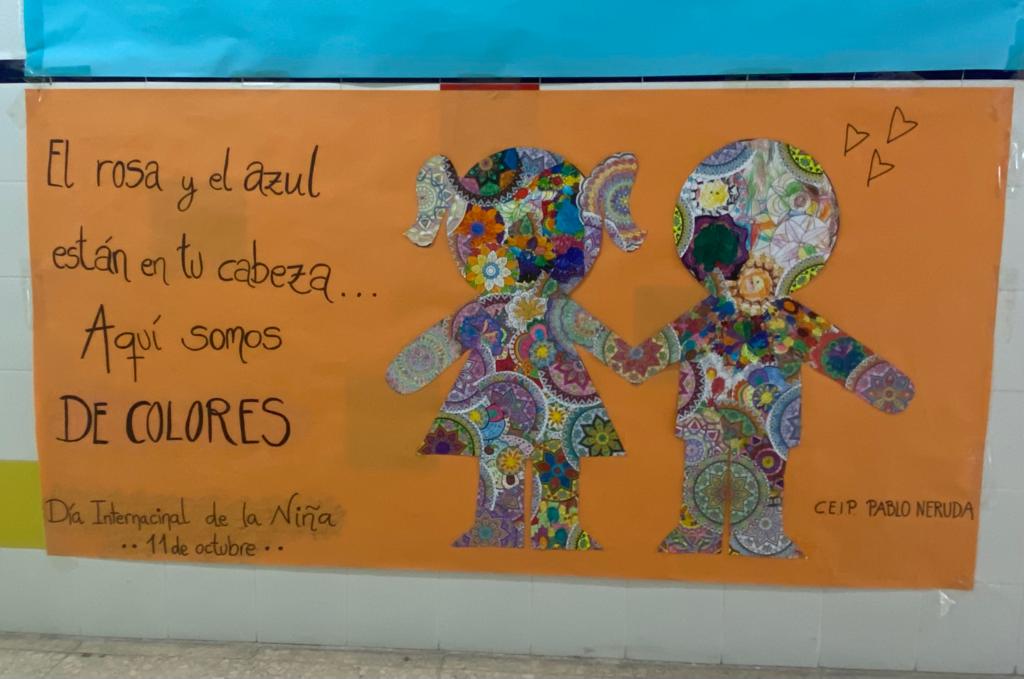 El rosa y el azul
están en tu cabeza...
Aquí somos
DE COLORES
Día Internacinal de la Niña
·· 11 de octubre ··
CEIP PABLO NERUDA